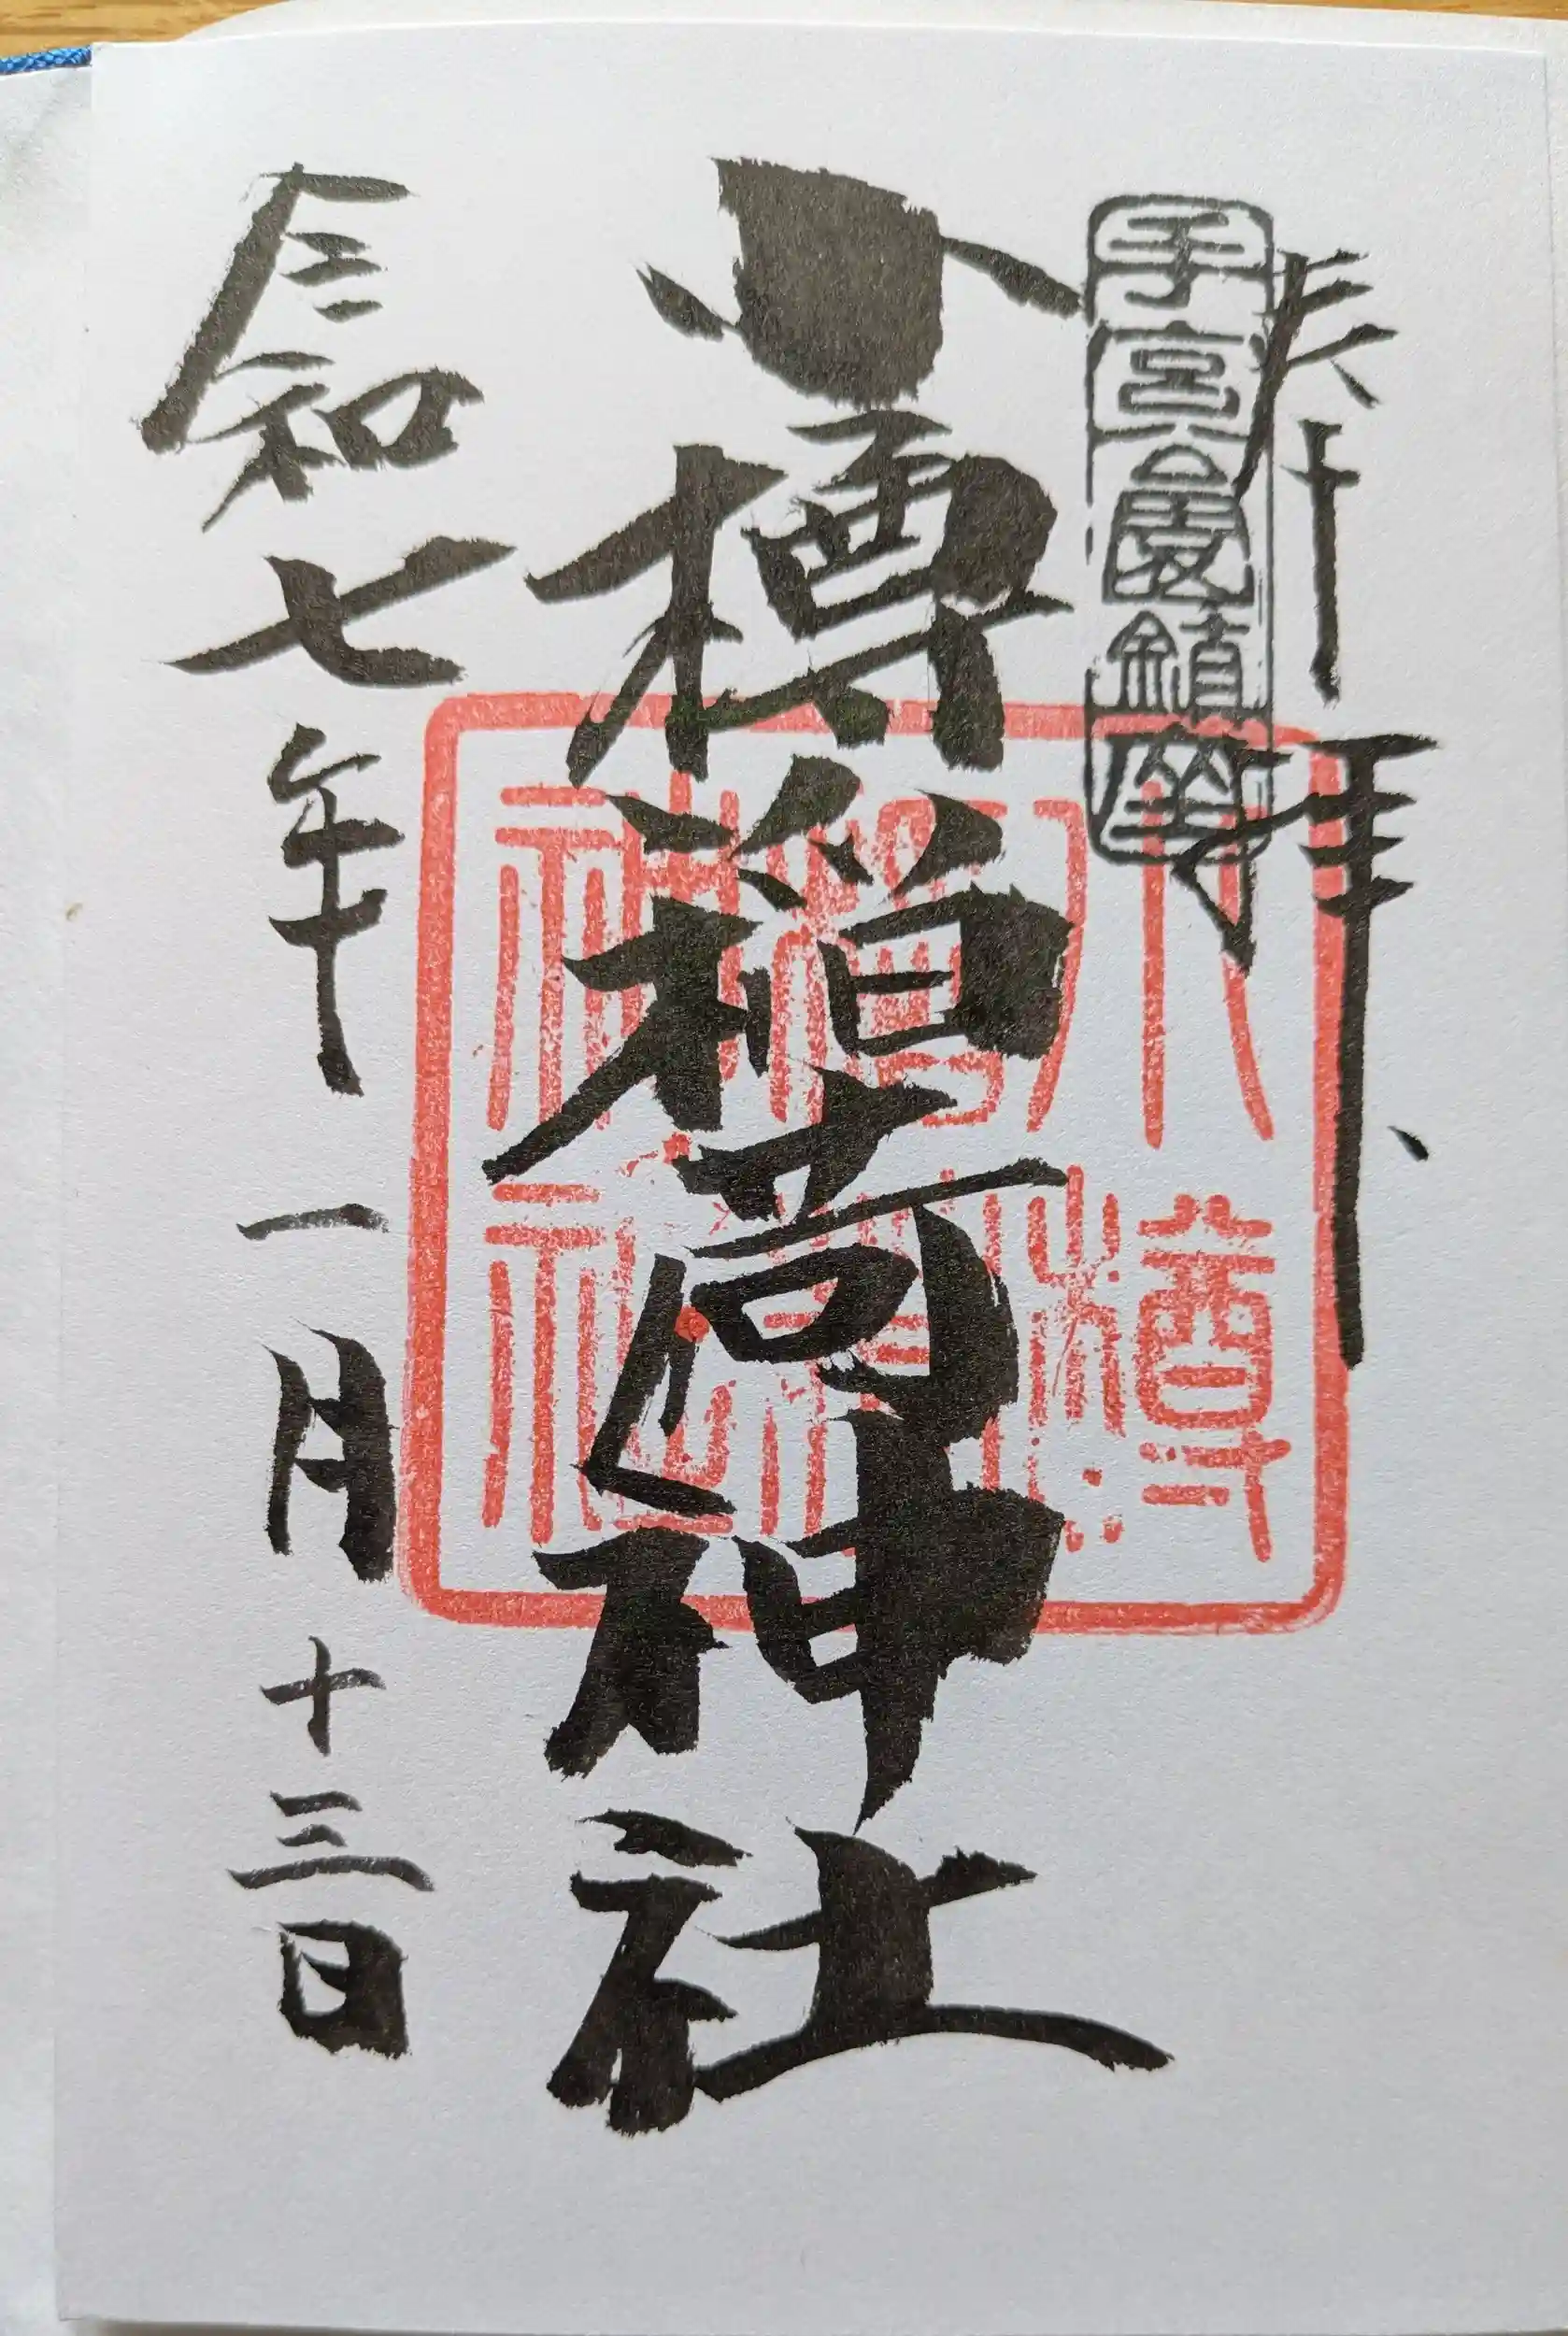 奉拝
手宮公園鎮座
小樽稲荷神社
令和七年一月十三日
小樽
稲荷
神社